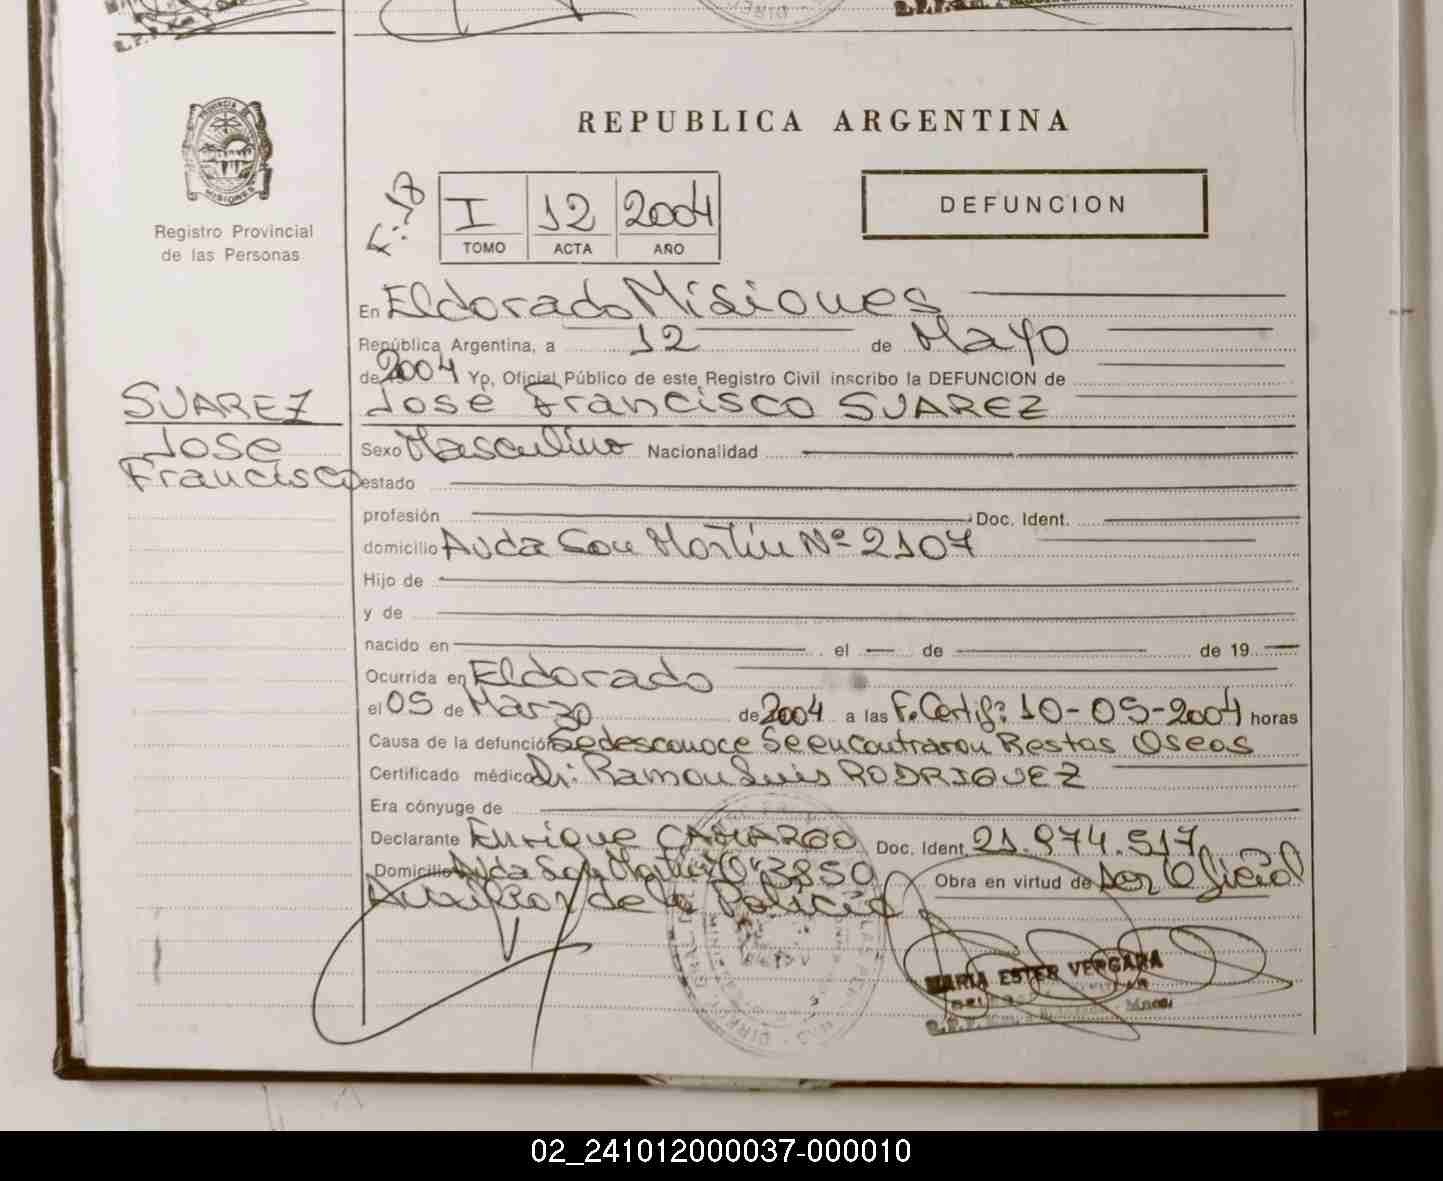 REPUBLICA ARGENTINA
PROVINCIA DE
MISIONES
Registro Provincial
de las Personas
I 12 2004
TOMO ACTA AÑO
DEFUNCION
En Eldorado Misiones
República Argentina, a 12 de Mayo
de 2004 Yo, Oficial Público de este Registro Civil inscribo la DEFUNCION de
SUAREZ
Jose
Francisco
Jose Francisco SUAREZ
Sexo Masculino Nacionalidad
estado
profesión Doc. Ident.
domicilio Avda San Martin Nº 2107
Hijo de
y de
nacido en el de de 19
Ocurrida en Eldorado
el 05 de Marzo de 2004 a las F. Certif: 10-05-2004 horas
Causa de la defunción Se desconoce Se encontraron Restos Oseos
Certificado médico Dr: Ramon Luis RODRIGUEZ
Era cónyuge de
Declarante Enrique CAMARGO Doc. Ident. 21.974.517
Domicilio Avda San Martin 3850 Obra en virtud de ser Oficial
Auxiliar de la Policia
MARIA ESTER VERGARA
02_241012000037-000010